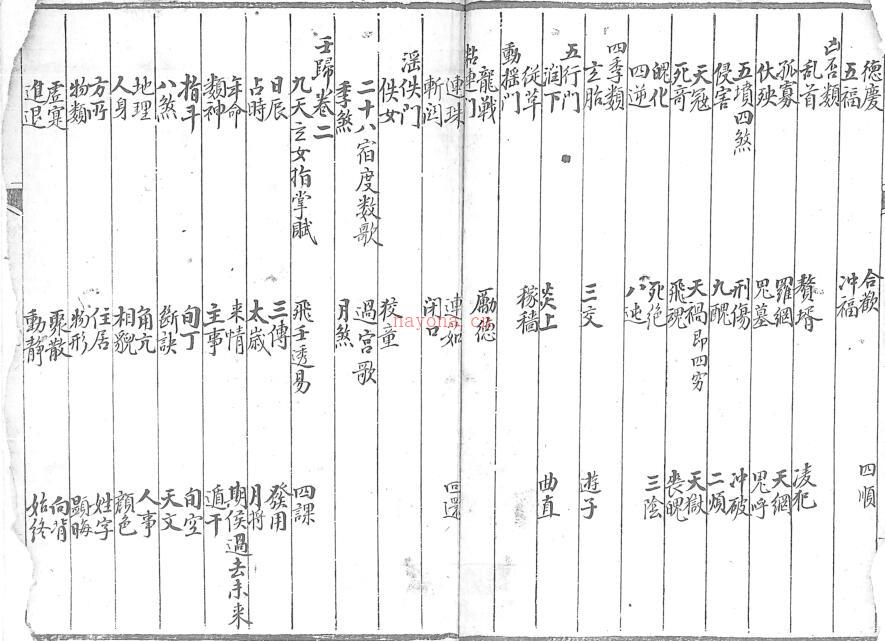 德慶 合歡 四順
五福 冲福
凶否類
乱首 贅壻 凌犯
孤寡 羅網 天網
伏殃 鬼墓 鬼呼
五墳四煞 刑傷 冲破
侵害 九醜 二煩
天冦 天禍即四穷 天獄
死奇 飛魂 喪魄
魄化 死绝 三陰
四逆 八迍
四季類
玄胎 三交 遊子
五行門
润下 炎上 曲直
従革 稼穡
動揺門
龍戦 勵德
粘連门
連珠 連如 回還
斬関 闭口
淫佚门
佚女 狡童
二十八宿度数歌 過宫歌
季煞 月煞
壬歸卷二
九天玄女指掌賦 飛壬透易 四課
日辰 三傳 發用
占時 太歲 月将
年命 来情 期侯過去未来
類神 主事 遁干
指斗 旬丁 旬空
八煞 斷訣 天文
地理 角亢 人事
人身 相貌 顔色
方所 住居 姓字
物類 物形 顕晦
虚寔 聚散 向背
進退 動静 始终